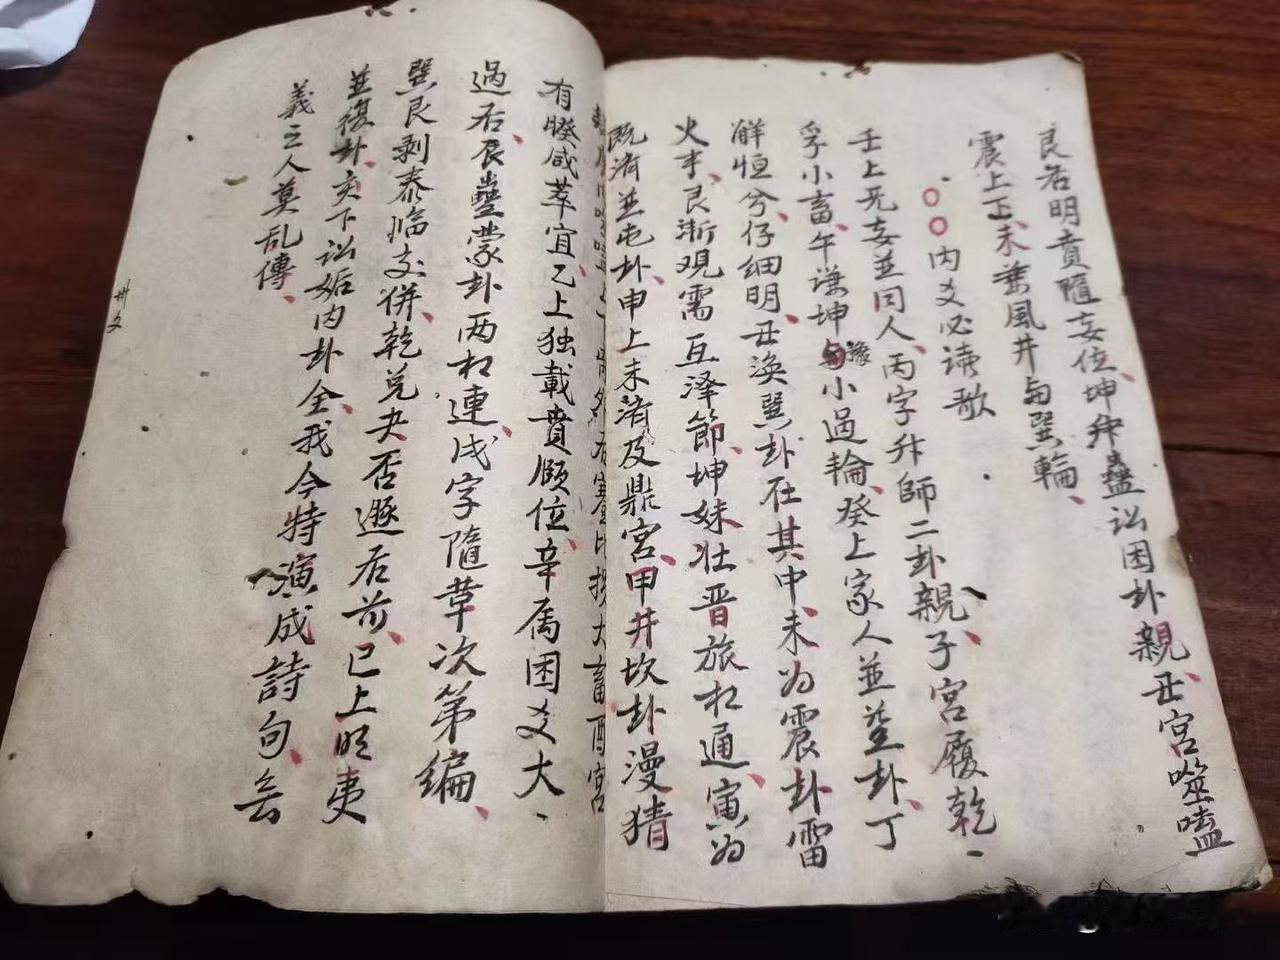 艮名明賁隨妄位、坤升蠱訟困卦親、丑宮噬嗑
震上正、未乗風井与巽輪、
○○内爻必读歌
壬上无妄並同人、丙字升師二卦親、子宮履乾
孚小畜、午谦坤与豫小過輪、癸上家人並蹇卦、丁
解恒兮、仔细明、丑渙巽卦在其中、未为震卦雷
火丰、艮渐观需互泽節、坤妹壮晋旅相通、寅为
既济並屯卦、申上未濟及鼎宮、甲井坎卦漫猜
大畜酉宮
有睽咸萃宜、乙上独載賁頤位、辛属困爻大
過右、辰蠱蒙卦两相連、戌字隨革次第编、
巽艮剥泰临交併、乾兑夬否遯右前、巳上明夷
並復卦、亥下訟姤内卦全、我今特演成詩句、無
義之人莫乱傳、
卅文